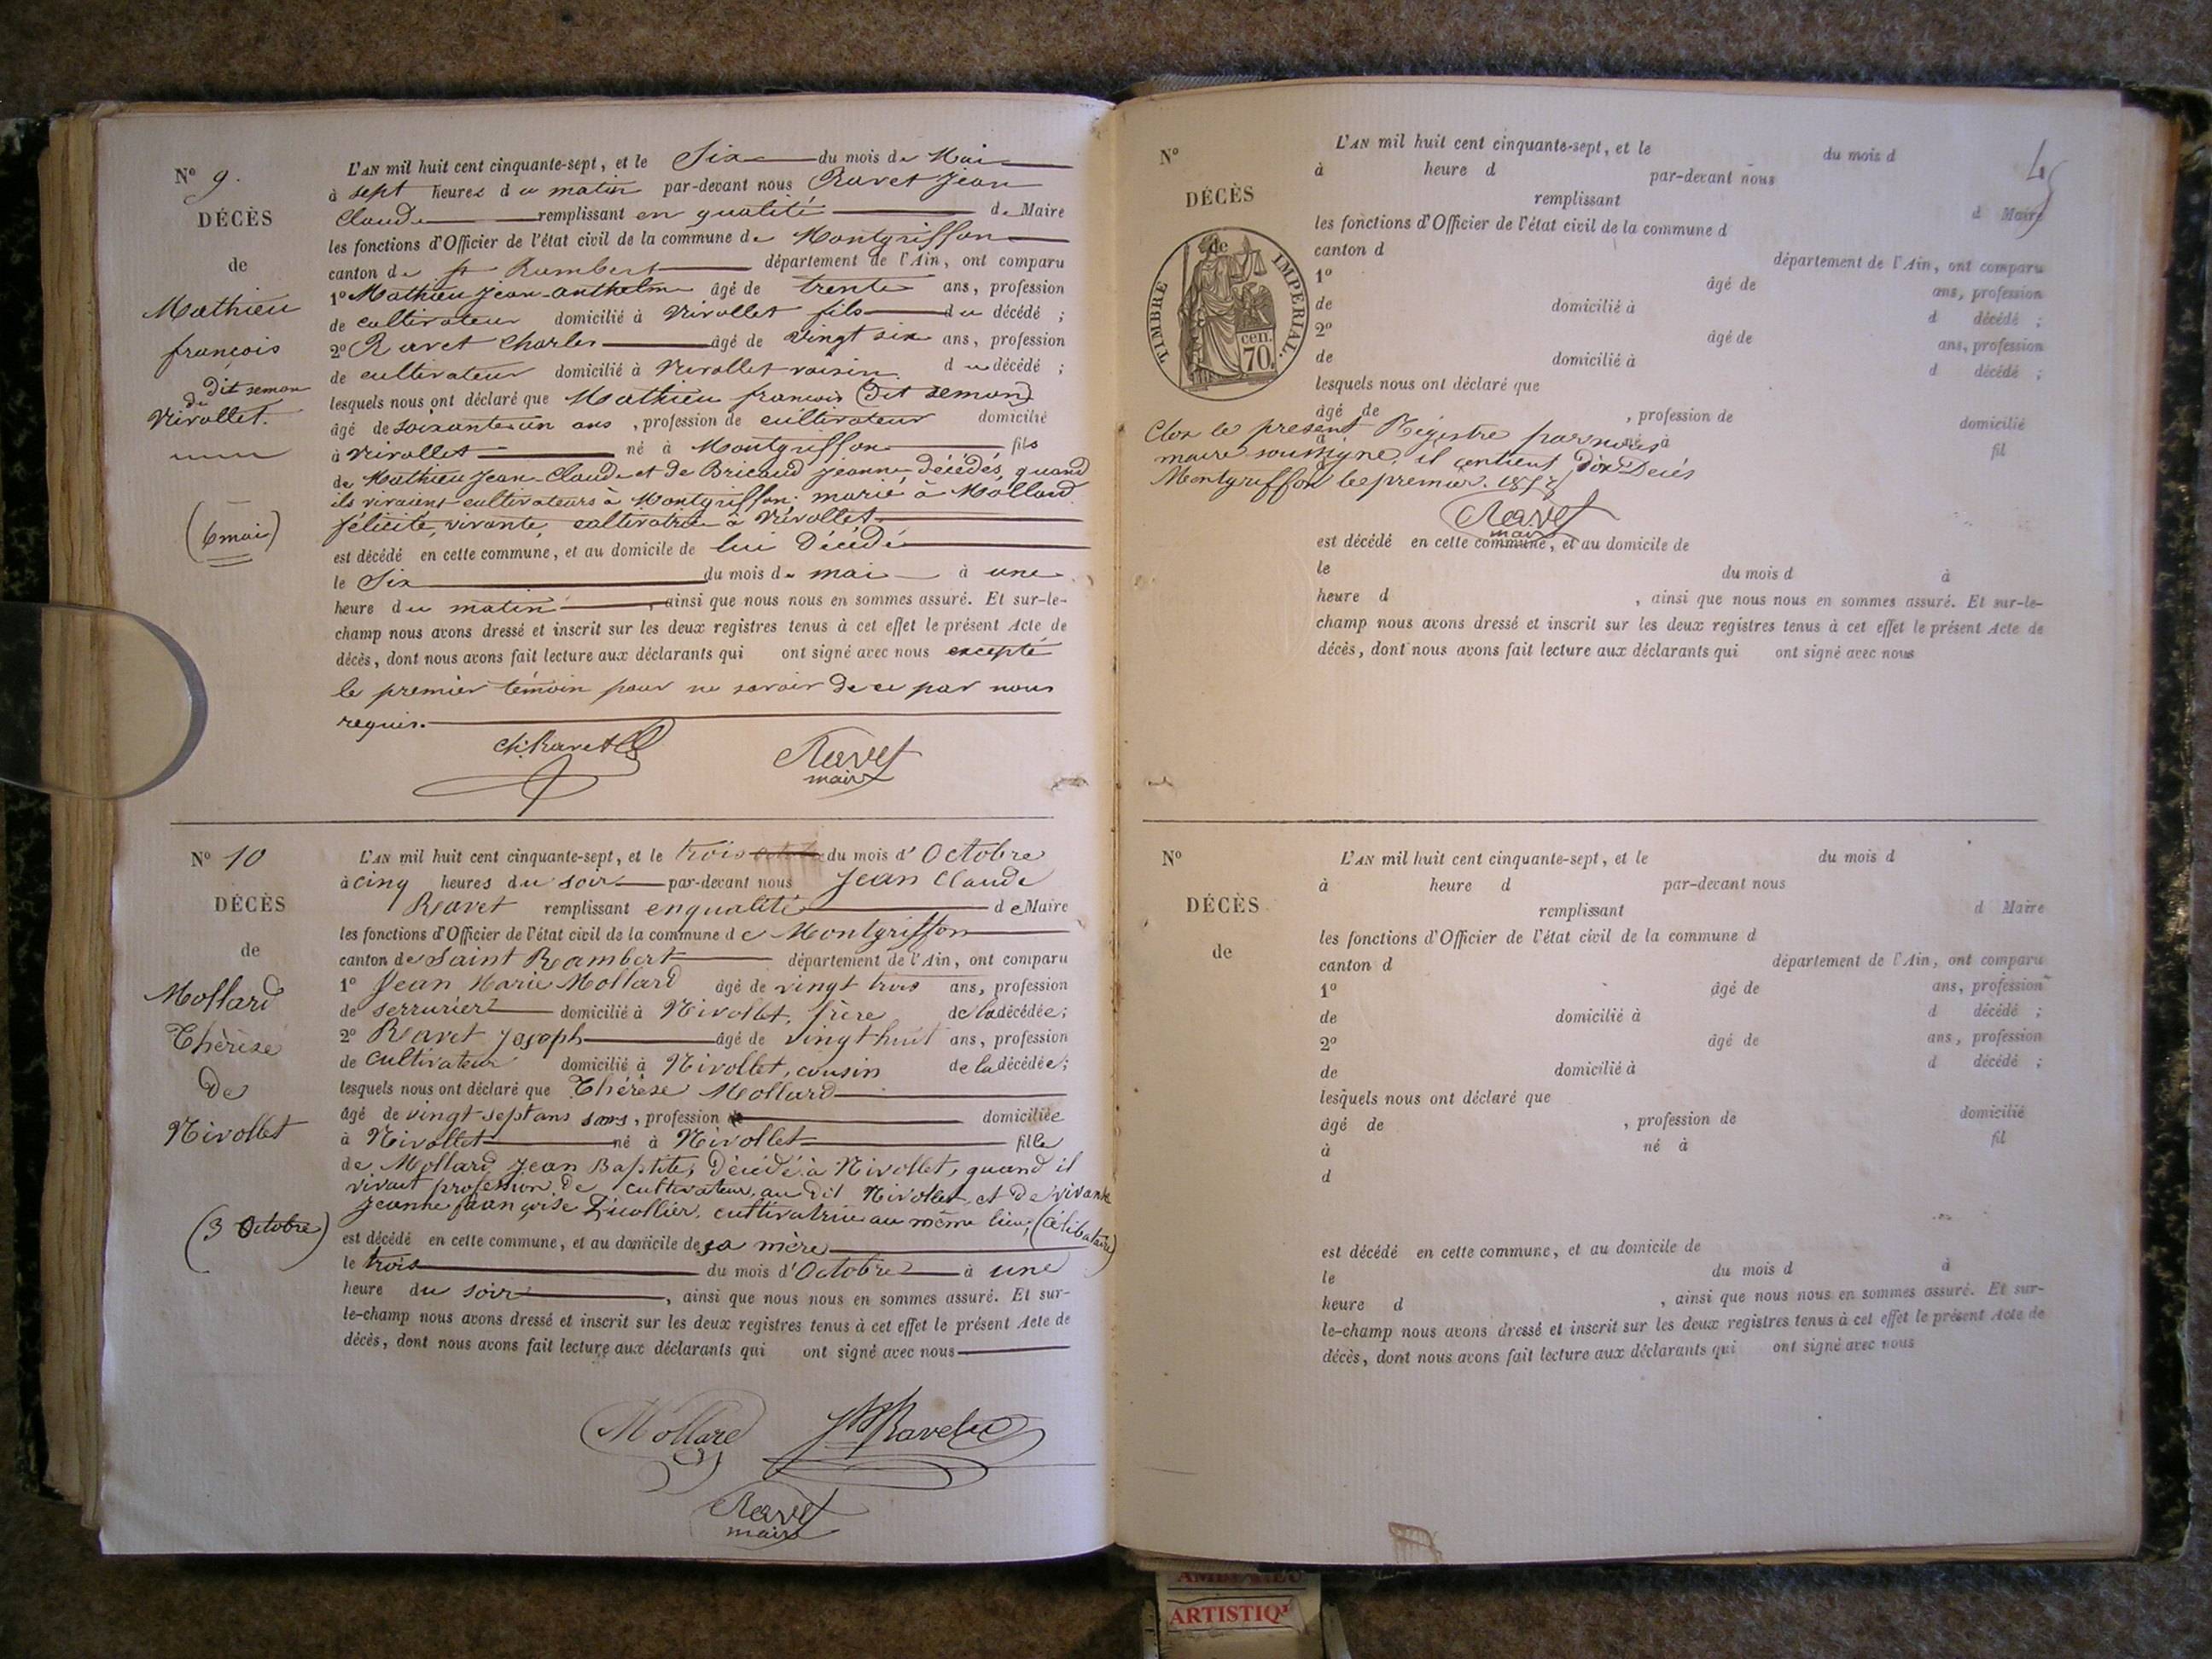 Nº 9.
DÉCÈS
de
Mathieu
françois
dit semon
de
Nivollet.
(6 mai)
L'AN mil huit cent cinquante-sept, et le Six du mois de Mai
à sept heures du matin par-devant nous Ravet Jean
Claude remplissant en qualité de Maire
les fonctions d'Officier de l'état civil de la commune de Montgriffon
canton de St Rambert département de l'Ain, ont comparu
1º Mathieu Jean-anthelme âgé de trente ans, profession
de cultivateur domicilié à Nivollet fils du décédé ;
2º Ravet Charles âgé de vingt six ans, profession
de cultivateur domicilié à Nivollet voisin du décédé ;
lesquels nous ont déclaré que Mathieu françois (dit semon)
âgé de soixante un ans, profession de cultivateur domicilié
à Nivollet né à Montgriffon fils
de Mathieu Jean-Claude et de Bricaud jeanne décédés, quand
ils vivaient cultivateurs à Montgriffon; marié à Mollard
félicité, vivante, cultivatrice à Nivollet
est décédé en cette commune, et au domicile de lui décédé
le Six du mois de mai à une
heure du matin, ainsi que nous nous en sommes assuré. Et sur-le-
champ nous avons dressé et inscrit sur les deux registres tenus à cet effet le présent Acte de
décès, dont nous avons fait lecture aux déclarants qui ont signé avec nous excepté
le premier témoin pour ne savoir de ce par nous
requis.
Ch. Ravet
Ravet
maire
Nº 10
DÉCÈS
de
Mollard
Thérèse
de
Nivollet
(3 Octobre)
L'AN mil huit cent cinquante-sept, et le trois du mois d'Octobre
à cinq heures du soir par-devant nous Jean Claude
Ravet remplissant en qualité de Maire
les fonctions d'Officier de l'état civil de la commune de Montgriffon
canton de Saint Rambert département de l'Ain, ont comparu
1º Jean Marie Mollard âgé de vingt trois ans, profession
de serrurier domicilié à Nivollet, frère de la décédée;
2º Ravet Joseph âgé de vingt huit ans, profession
de cultivateur domicilié à Nivollet, cousin de la décédée;
lesquels nous ont déclaré que Thérèse Mollard
âgé de vingt-sept ans sans, profession domiciliée
à Nivollet né à Nivollet fille
de Mollard Jean Baptiste, décédé à Nivollet, quand il
vivait profession de cultivateur au dit Nivollet et de vivante
Jeanne françoise, cultivatrice au même lieu, (célibataire)
est décédé en cette commune, et au domicile de sa mère
le trois du mois d'Octobre à une
heure du soir, ainsi que nous nous en sommes assuré. Et sur-
le-champ nous avons dressé et inscrit sur les deux registres tenus à cet effet le présent Acte de
décès, dont nous avons fait lecture aux déclarants qui ont signé avec nous
Mollard
Ravet
Ravet
maire
Nº
DÉCÈS
de
TIMBRE IMPERIAL.
70 cen.
L'AN mil huit cent cinquante-sept, et le du mois d
à heure d par-devant nous
remplissant d Maire
les fonctions d'Officier de l'état civil de la commune d
canton d département de l'Ain, ont comparu
1º âgé de ans, profession
de domicilié à d décédé ;
2º âgé de ans, profession
de domicilié à d décédé ;
lesquels nous ont déclaré que
âgé de , profession de domicilié
à né à fil
Clos le présent Régistre par nous
maire soussigné, il contient dix Décès
Montgriffon le premier
Ravet
maire
est décédé en cette commune, et au domicile de
le du mois d à
heure d , ainsi que nous nous en sommes assuré. Et sur-le-
champ nous avons dressé et inscrit sur les deux registres tenus à cet effet le présent Acte de
décès, dont nous avons fait lecture aux déclarants qui ont signé avec nous
Nº
DÉCÈS
de
L'AN mil huit cent cinquante-sept, et le du mois d
à heure d par-devant nous
remplissant d Maire
les fonctions d'Officier de l'état civil de la commune d
canton d département de l'Ain, ont comparu
1º âgé de ans, profession
de domicilié à d décédé ;
2º âgé de ans, profession
de domicilié à d décédé ;
lesquels nous ont déclaré que
âgé de , profession de domicilié
à né à fil
d
est décédé en cette commune, et au domicile de
le du mois d à
heure d , ainsi que nous nous en sommes assuré. Et sur-
le-champ nous avons dressé et inscrit sur les deux registres tenus à cet effet le présent Acte de
décès, dont nous avons fait lecture aux déclarants qui ont signé avec nous
ARTISTIQ